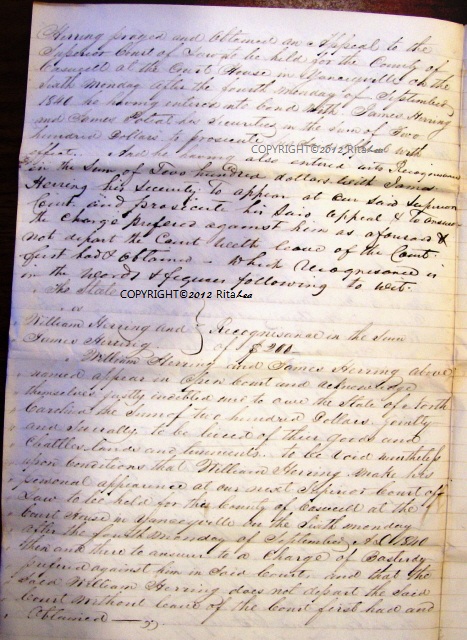 Herring prayed and obtained an Appeal to the
Superior Court of Law to be held for the County of
Caswell at the Court House in Yanceyville on the
sixth Monday after the fourth Monday of September
1840 he having entered into Bond with James Herring
and James Poteet in Securities in the sum of Two
hundred Dollars to prosecute with
effect. And he having also entered into Recognisance
in the Sum of Two hundred dollars with James
Herring his Security to appear at our said Superior
Court and prosecute his said appeal & to answer
the charge prefered against him as aforesaid &
not depart the Court with leave of the Court
first had & obtained - Which Recognisance is
in the words & figures following to wit.
The State
COPYRIGHT©2012 RitaLea
COPYRIGHT©2012 RitaLea
vs
William Herring and } Recognisance in the Sum
James Herring of $200
William Herring and James Herring above
named appear in Open Court and acknowledge
themselves justly indebted to owe the State of North
Carolina the Sum of two hundred Dollars jointly
and severally to be levied of their goods and
Chattles lands and tenements. To be void nevertheless
upon Conditions that William Herring make his
personal appearance at our next Superior Court of
Law to be held for this County of Caswell at the
Court House in Yanceyville on the Sixth monday
after the fourth monday of September A.D. 1840
then and there to answer to a Charge of Bastardy
prefered against him in Said Court, and that the
Said William Herring does not depart the Said
Court without leave of the Court first had and
Obtained